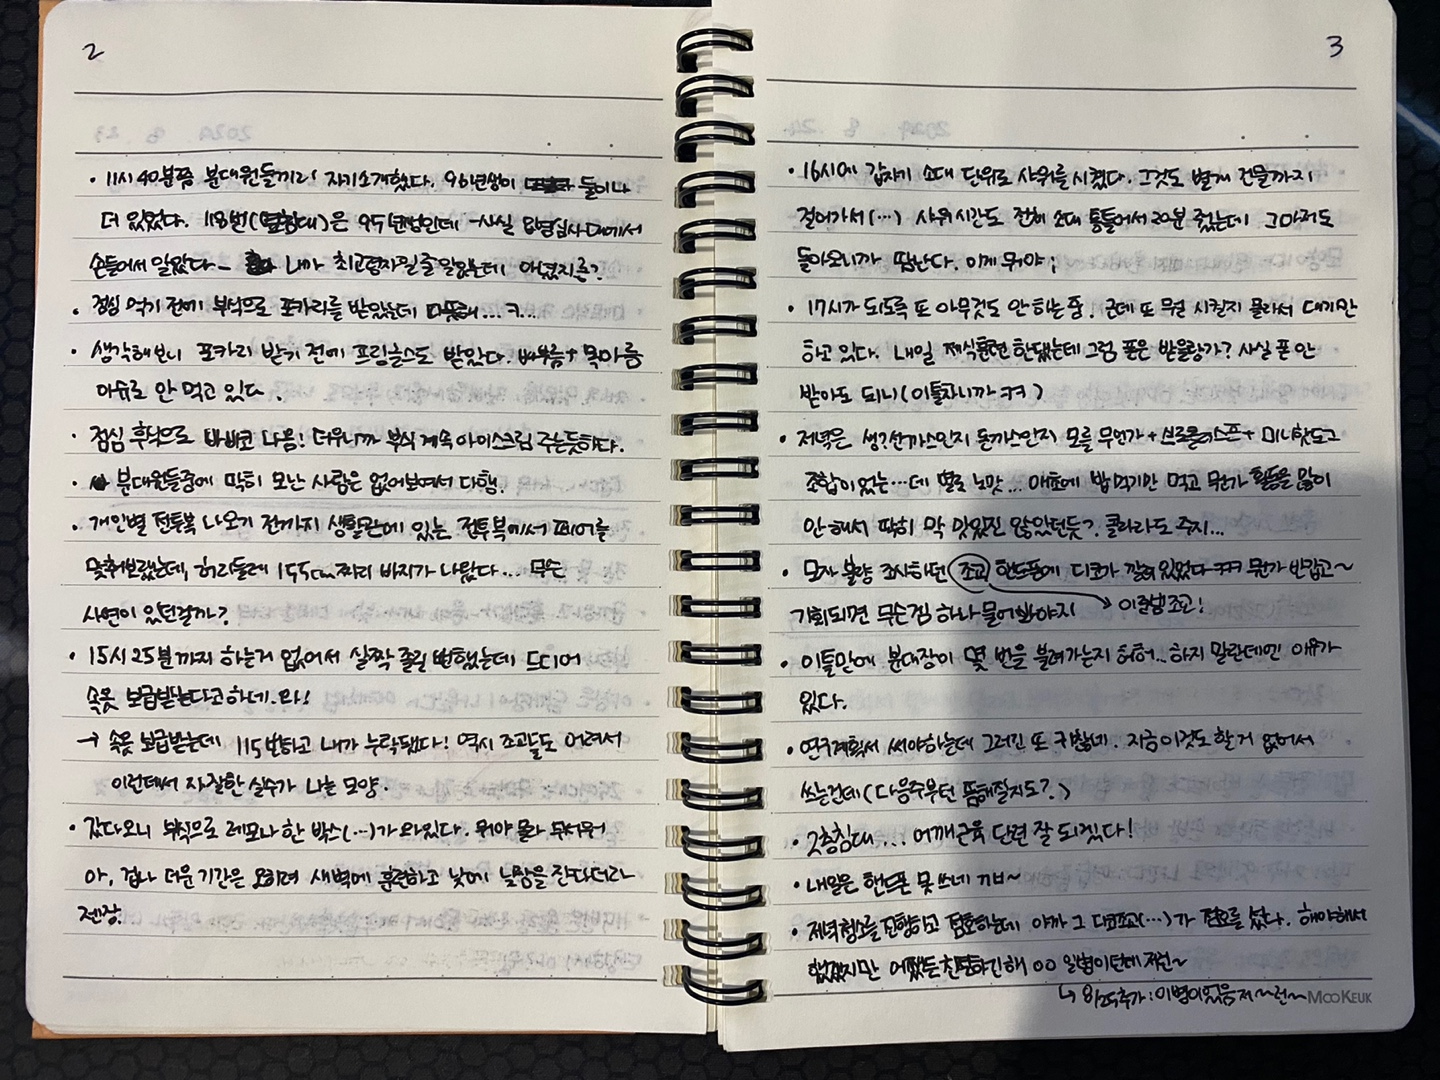 2
• 11시 40분쯤 분대원들끼리 자기소개했다. 96년생이 둘이나
더 있었다. 118번( )은 95년생인데 -사실 입영심사대에서
손들어서 알았다- 내가 최고령자일 줄 알았는데 아녔지롱?
• 점심 먹기 전에 부식으로 포카리를 받았는데 따뜻해...ㅋ...
• 생각해보니 포카리 받기 전에 프링글스도 받았다. 배부름+목마름
이슈로 안 먹고 있다.
• 점심 후식으로 빠삐코 나옴! 더우니까 부식 계속 아이스크림 주는듯하다.
• 분대원들중에 딱히 모난 사람은 없어보여서 다행.
• 개인별 전투복 나오기 전까지 생활관에 있는 전투복에서 페어를
맞춰보랬는데, 허리둘레 155cm짜리 바지가 나왔다... 무슨
사연이 있던걸까?
• 15시 25분까지 하는거 없어서 살짝 졸릴 뻔했는데 드디어
속옷 보급받는다고 하네. 와!
→ 속옷 보급받는데 115번하고 내가 누락됐다! 역시 조교들도 어려서
이런데서 자잘한 실수가 나는 모양.
• 갔다오니 부식으로 레모나 한 박스(...)가 와있다. 뭐야 몰라 무서워
아, 겁나 더운 기간은 오히려 새벽에 훈련하고 낮에 낮잠을 잔다더라
젠장.
3
• 16시에 갑자기 소대 단위로 샤워를 시켰다. 그것도 별개 건물까지
걸어가서(...) 샤워시간도 전체 소대 통틀어서 20분 줬는데 그마저도
돌아오니까 땀난다. 이게 뭐야;
• 17시가 되도록 또 아무것도 안 하는 중. 근데 또 뭘 시킬지 몰라서 대기만
하고 있다. 내일 제식훈련 한댔는데 그럼 폰은 받을랑가? 사실 폰 안
받아도 되니(이틀차니까 ㅋㅋ)
• 저녁은 생?선까스인지 돈까스인지 모를 무언가+브로콜리스프+미니핫도그
조합이었는...데 별로 노맛... 애초에 밥먹기만 먹고 뭔가 활동을 많이
안 해서 딱히 막 맛있진 않았던듯?. 콜라라도 주지...
• 모자 불량 조사하던 조교 핸드폰에 디코가 깔려있었다 ㅋㅋ 뭔가 반갑고~
기회되면 무슨겜 하나 물어봐야지 → 이일병조교!
• 이틀만에 분대장이 몇 번을 불려가는지 허허.. 하지 말란데엔 이유가
있다.
• 연구계획서 써야하는데 그러긴 또 귀찮네. 지금 이것도 할거 없어서
쓰는건데(다음주부턴 뜸해질지도?)
• 2층침대... 어깨근육 단련 잘 되겠다!
• 내일은 핸드폰 못 쓰네 ㄲㅂ~
• 저녁청소를 진행하고 점호하는데 아까 그 디코조교(...)가 점호를 섰다. 해야해서
했겠지만 어쨌든 친절하긴해 ○○ 일병이던데 저런~
↳ 8/25추가: 이병이었음 저~런~
MOOKEUK